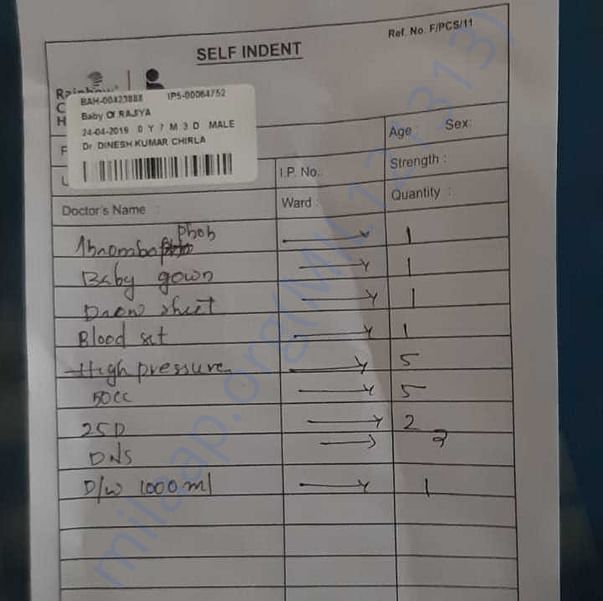 Ref. No. F/PCS/11
SELF INDENT
Rainbow
C
H
BAH-00423888 IPS-00064752
Baby Of RAJIYA
24-04-2019 0 Y 7 M 3 D MALE
Dr DINESH KUMAR CHIRLA
Age : Sex:
I.P. No.: Strength :
Doctor's Name : Ward : Quantity :
Phob → 1
Baby gown → 1
Draw sheet → 1
Blood set → 1
High pressure → 5
50cc → 5
25D → 2
DNS → 2
D/W 1000 ml → 1
milaap.org(MK